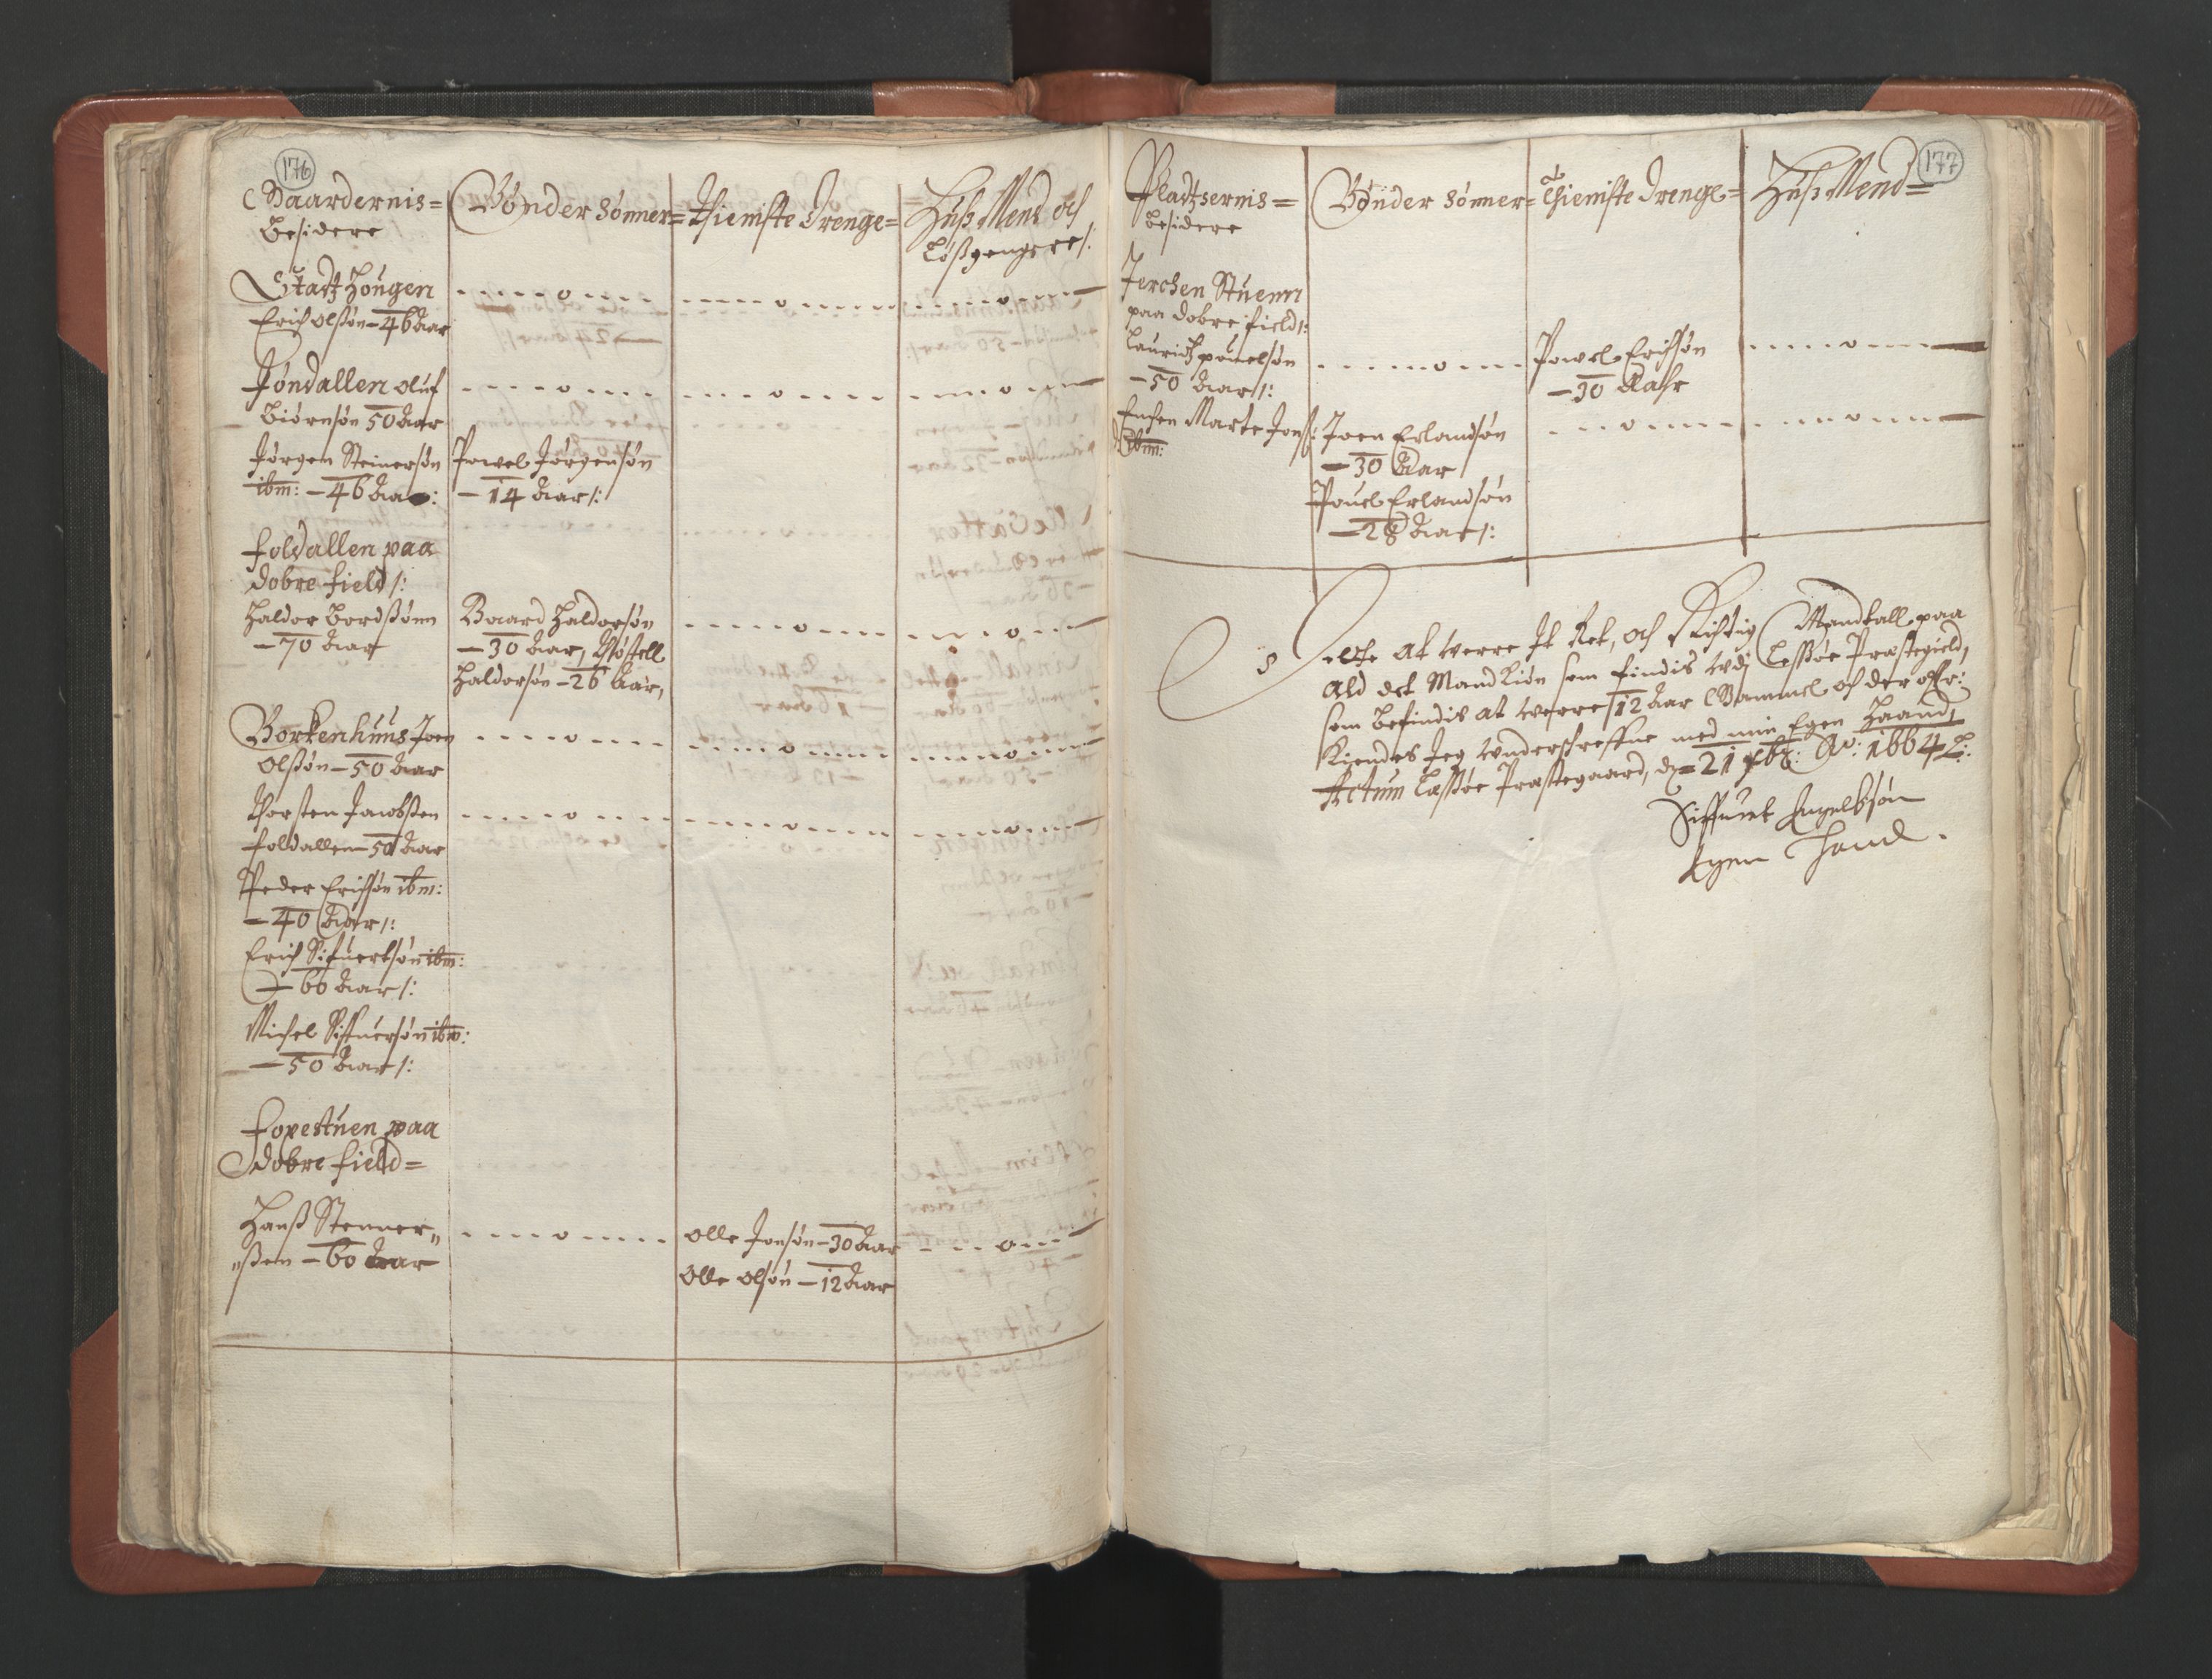 176
Gaardernis=
Besidere
Bønder Sønner=
Thieniste Drenge=
Huß Mend och
Løßgengere/:
Stadtz Hougen
Erich Olßøn - 46 Aar
Jøndallen Oluf
Biørnsøn 50 Aar
Jørgen Steinersøn
ibm: - 46 Aar:
Powel Jørgensøn
- 14 Aar/:
Foldallen paa
Dobre field/:
Haldor Bordßønn
- 70 Aar
Baard Haldorsøn
- 30 Aar,
Haldorsøn - 26 Aar,
Borkenhuus Joen
Olßøn - 50 Aar
Thorsten Jacobßen
Foldallen 50 Aar
Peder Erichsøn ibm:
- 40 Aar/:
Erich Sifuertsøn ibm:
- 60 Aar/:
Michel Siffuersøn ibm:
- 50 Aar/:
Foxestuen paa
Dobre field=
Hanß Stenner„
„ßen - 60 Aar
Olle Jonsøn - 30 Aar
Olle Olsøn - 12 Aar
177
Pladtzsernis=
Besidere
Bønder Sønner=
Thieniste Drenge=
Huß Mend=
Jerchen Stuenn
paa Dobre field/:
Lauridtz Pouelsøn
- 50 Aar/:
Powel Erichsøn
- 30 Aahr
Enchen Marte Jonß:
ibm:
Joen Erlandsøn
- 30 Aar
Pouel Erlandsøn
- 28 Aar/:
at werre It Ret, och Richtig Mandtall paa
Ald det Mandkiøn som findis udj Lessøe Præstegield,
som befindis at werre 12 Aar Gammel och der offr:
Kiendes Jeg underschreffne med min Egen Haand,
Actum Lessøe Præstegaard, d= 21 Ao: 1664
Siffuert Engelbsøn
Egen Haand.